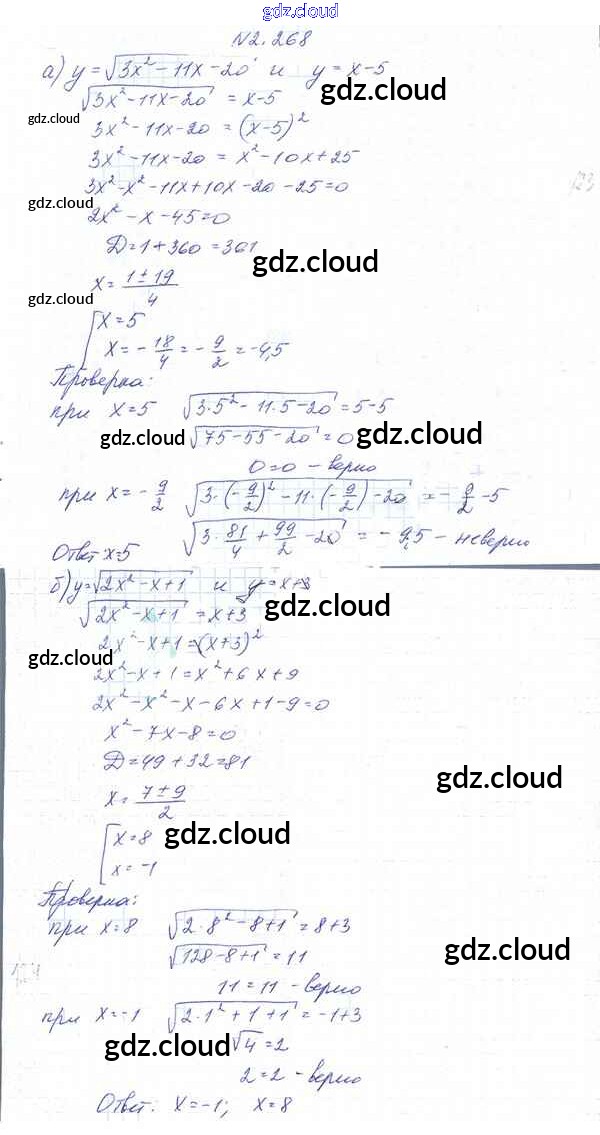 gdz.cloud
N2.268
а) y=√3x²-11x-20 и y=x-5
√3x²-11x-20 = x-5
gdz.cloud
gdz.cloud
3x²-11x-20=(x-5)²
3x²-11x-20=x²-10x+25
3x²-x²-11x+10x-20-25=0
gdz.cloud
2x²-x-45=0
D=1+360=361
gdz.cloud
x=(1±19)/4
gdz.cloud
[x=5
x=-18/4=-9/2=-4,5
Проверка:
при x=5 √3·5²-11·5-20=5-5
gdz.cloud √75-55-20=0 gdz.cloud
0=0-верно
при x=-9/2 √3·(-9/2)²-11·(-9/2)-20=-9/2-5
√3·81/4+99/2-20=-9,5-неверно
Ответ x=5
б) y=√2x²-x+1 и y=x+3
√2x²-x+1=x+3 gdz.cloud
2x²-x+1=(x+3)²
gdz.cloud
2x²-x+1=x²+6x+9
2x²-x²-x-6x+1-9=0
x²-7x-8=0
D=49+32=81
gdz.cloud
x=(7±9)/2
[x=8 gdz.cloud
x=-1
Проверка:
при x=8 √2·8²-8+1=8+3
√128-8+1=11 gdz.cloud
11=11-верно
при x=-1 √2·1²+1+1=-1+3
gdz.cloud √4=2
2=2-верно
Ответ: x=-1; x=8